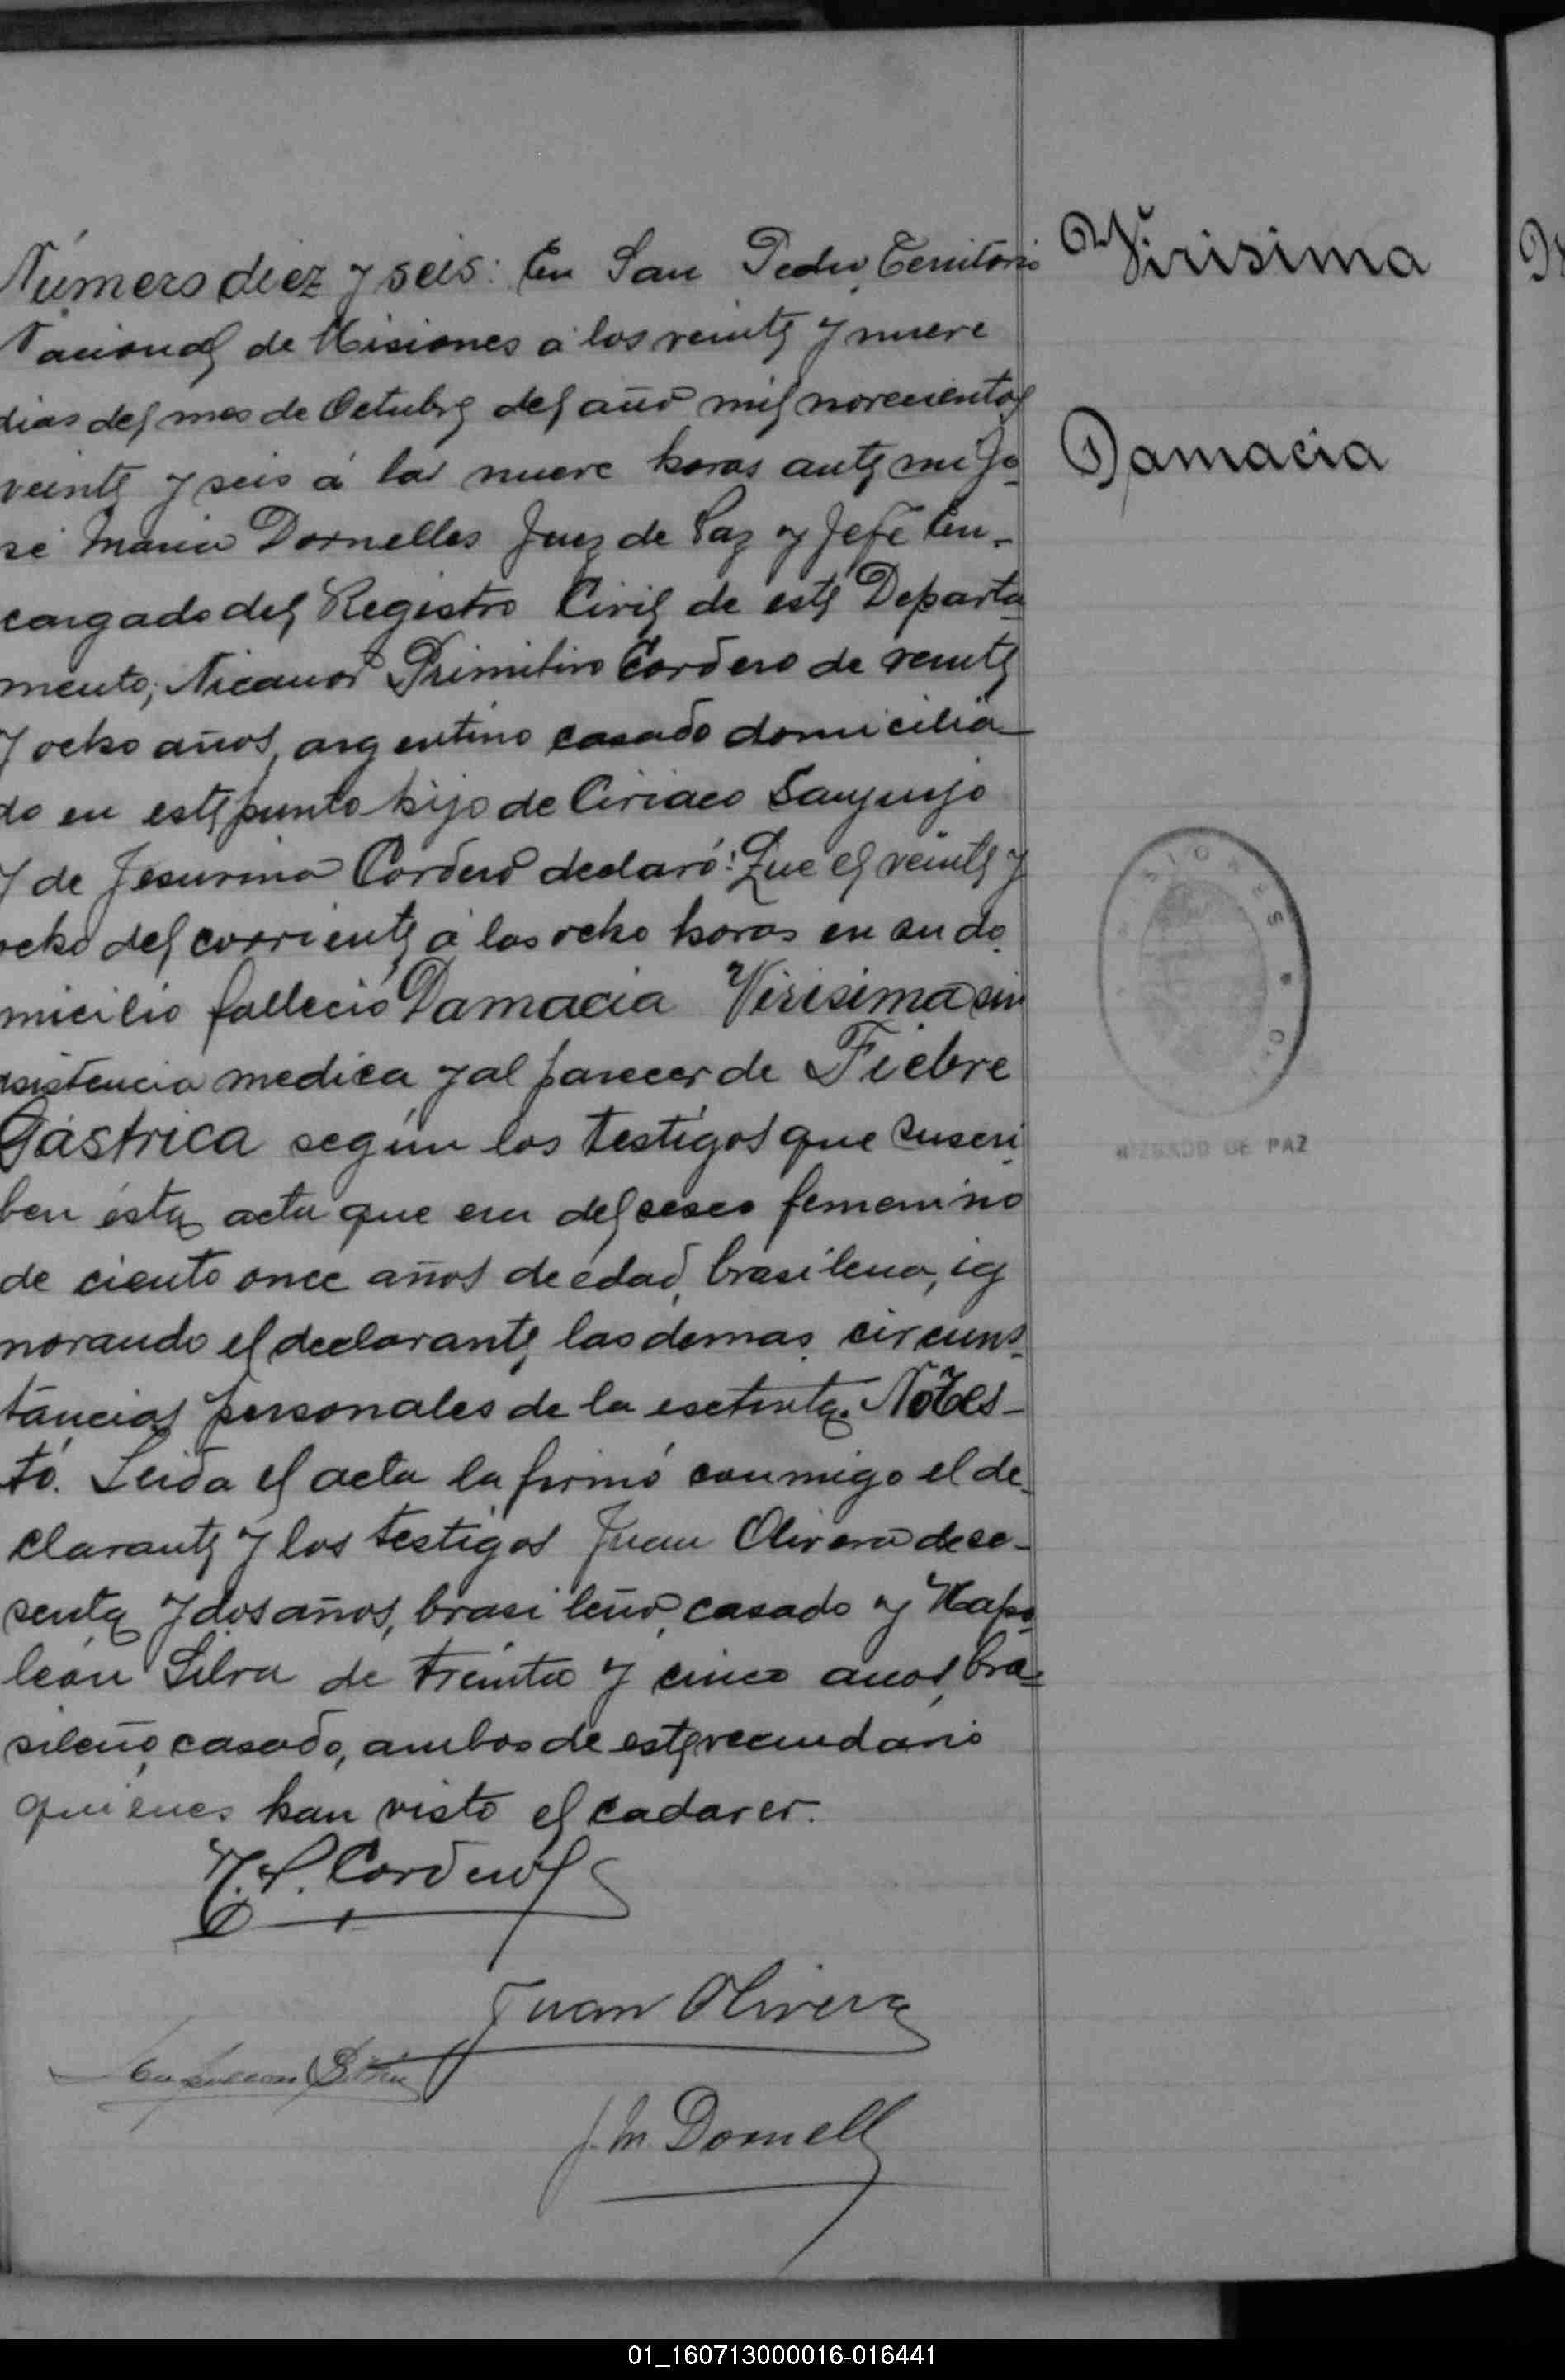 Número diez y seis: En San Pedro, Territorio
Nacional de Misiones á los veinte y nueve
dias del mes de Octubre del año mil novecientos
veinte y seis á las nueve horas ante mi Jo-
sé Maria Dornelles Juez de Paz y Jefe En-
cargado del Registro Civil de este Departa
mento, Nicanor Primitivo Cordero de veinte
y ocho años, argentino casado domicilia
do en este punto hijo de Ciriaco
y de Jesuvina Cordero declaró: Que el veinte y
ocho del corriente á las ocho horas en su do
micilio falleció Damacia Virisima sin
asistencia medica y al parecer de Fiebre
Gástrica según los testigos que suscri
ben ésta acta que era del sexo femenino
de ciento once años de edad, brasilena, ig
norando el declarante las demas circuns
tancias personales de la esctinta. No tes-
tó. Leida el acta la firmó conmigo el de-
clarante y los testigos Juan Olivera de se-
senta y dos años, brasileño, casado y Napo
león Silva de treinta y cinco anos, bra-
sileño, casado, ambos de este vecindario
quienes han visto el cadaver.
N. P. Cordero
Juan Olivera
Napoleon Silva
J. M. Dornell
Virisima
Damacia
MISIONES
JUZGADO DE PAZ
01_160713000016-016441